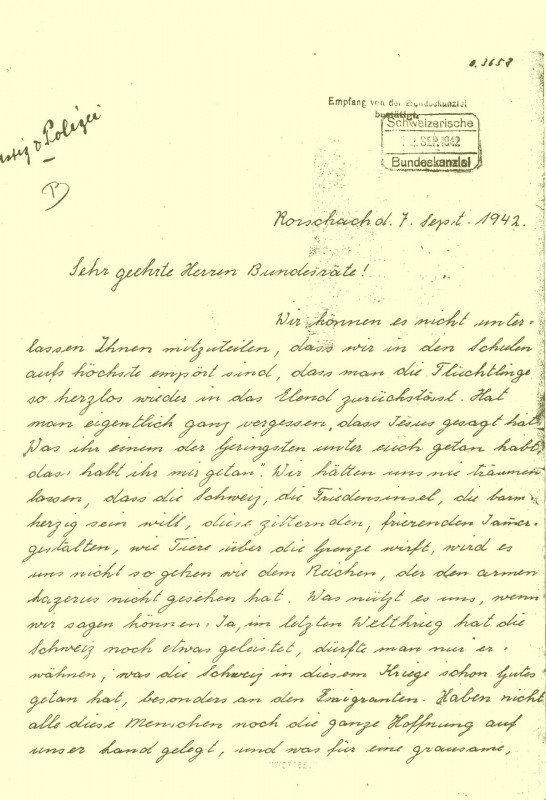 Empfang von der Bundeskanzlei
bestätigt.
Schweizerische
SEP. 1942
Bundeskanzlei
Polizei
B
Rorschach d. 7. Sept. 1942.
Sehr geehrte Herren Bundesräte!
Wir können es nicht unter-
lassen Ihnen mitzuteilen, dass wir in den Schulen
aufs höchste empört sind, dass man die Flüchtlinge
so herzlos wieder in das Elend zurückstösst. Hat
man eigentlich ganz vergessen, dass Jesus gesagt hat
„Was ihr einem der Geringsten unter euch getan habt,
das habt ihr mir getan". Wir hätten uns nie träumen
lassen, dass die Schweiz, die Friedensinsel, die barm-
herzig sein will, diese zitternden, frierenden Jammer-
gestalten, wie Tiere über die Grenze wirft, wird es
uns nicht so gehen wie dem Reichen, der den armen
Lazerus nicht gesehen hat. Was nützt es uns, wenn
wir sagen können: Ja, im letzten Weltkrieg hat die
Schweiz noch etwas geleistet, dürfte man nur er-
wähnen, was die Schweiz in diesem Kriege schon Gutes
getan hat, besonders an den Emigranten. Haben nicht
alle diese Menschen noch die ganze Hoffnung auf
unser Land gelegt, und was für eine grausame,